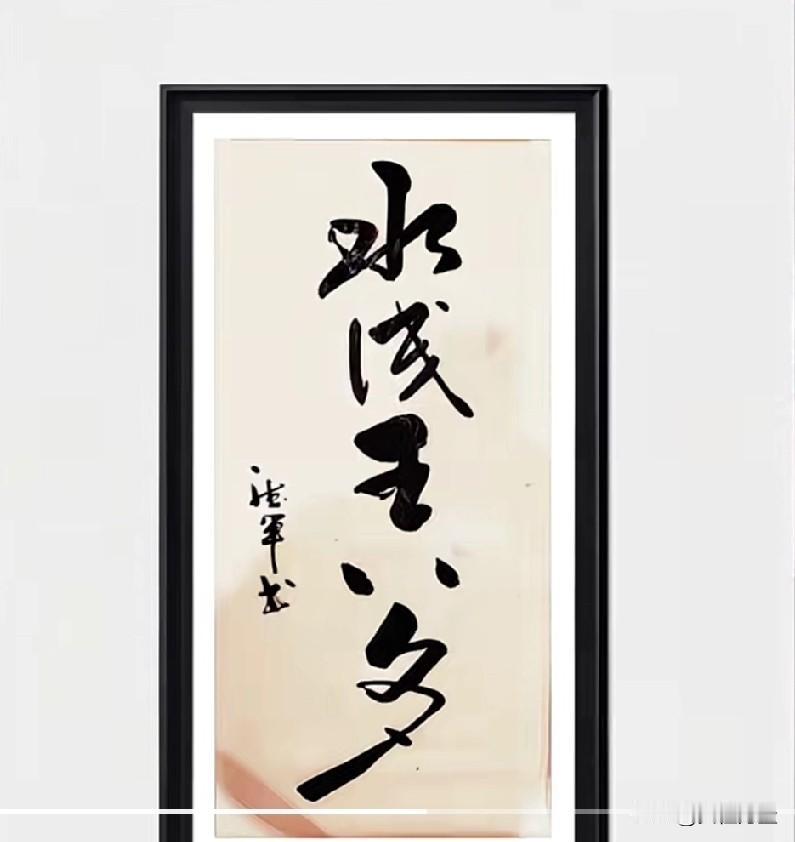 水浅王八多
德军书